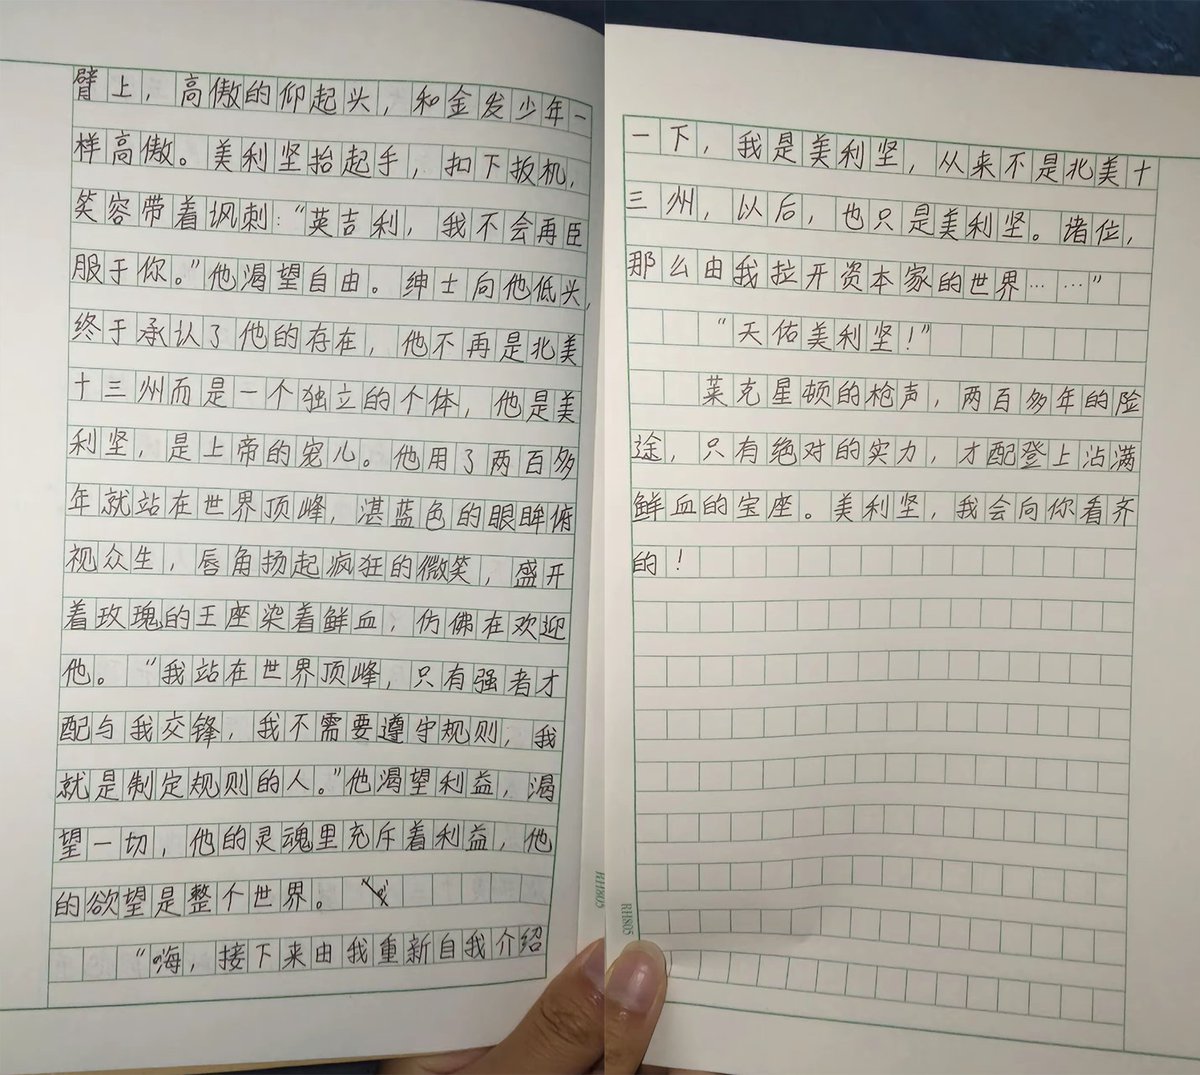 臂上，高傲的仰起头，和金发少年一
样高傲。美利坚抬起手，扣下扳机，
笑容带着讽刺：“英吉利，我不会再臣
服于你。”他渴望自由。绅士向他低头，
终于承认了他的存在，他不再是北美
十三州而是一个独立的个体，他是美
利坚，是上帝的宠儿。他用了两百多
年就站在世界顶峰，湛蓝色的眼眸俯
视众生，唇角扬起疯狂的微笑，盛开
着玫瑰的王座染着鲜血，仿佛在欢迎
他。“我站在世界顶峰，只有强者才
配与我交锋，我不需要遵守规则，我
就是制定规则的人。”他渴望利益，渴
望一切，他的灵魂里充斥着利益，他
的欲望是整个世界。
“嗨，接下来由我重新自我介绍
RH805
一下，我是美利坚，从来不是北美十
三州，以后，也只是美利坚。诸位，
那么由我拉开资本家的世界……”
“天佑美利坚！”
莱克星顿的枪声，两百多年的险
途，只有绝对的实力，才配登上沾满
鲜血的宝座。美利坚，我会向你看齐
的！
RH805